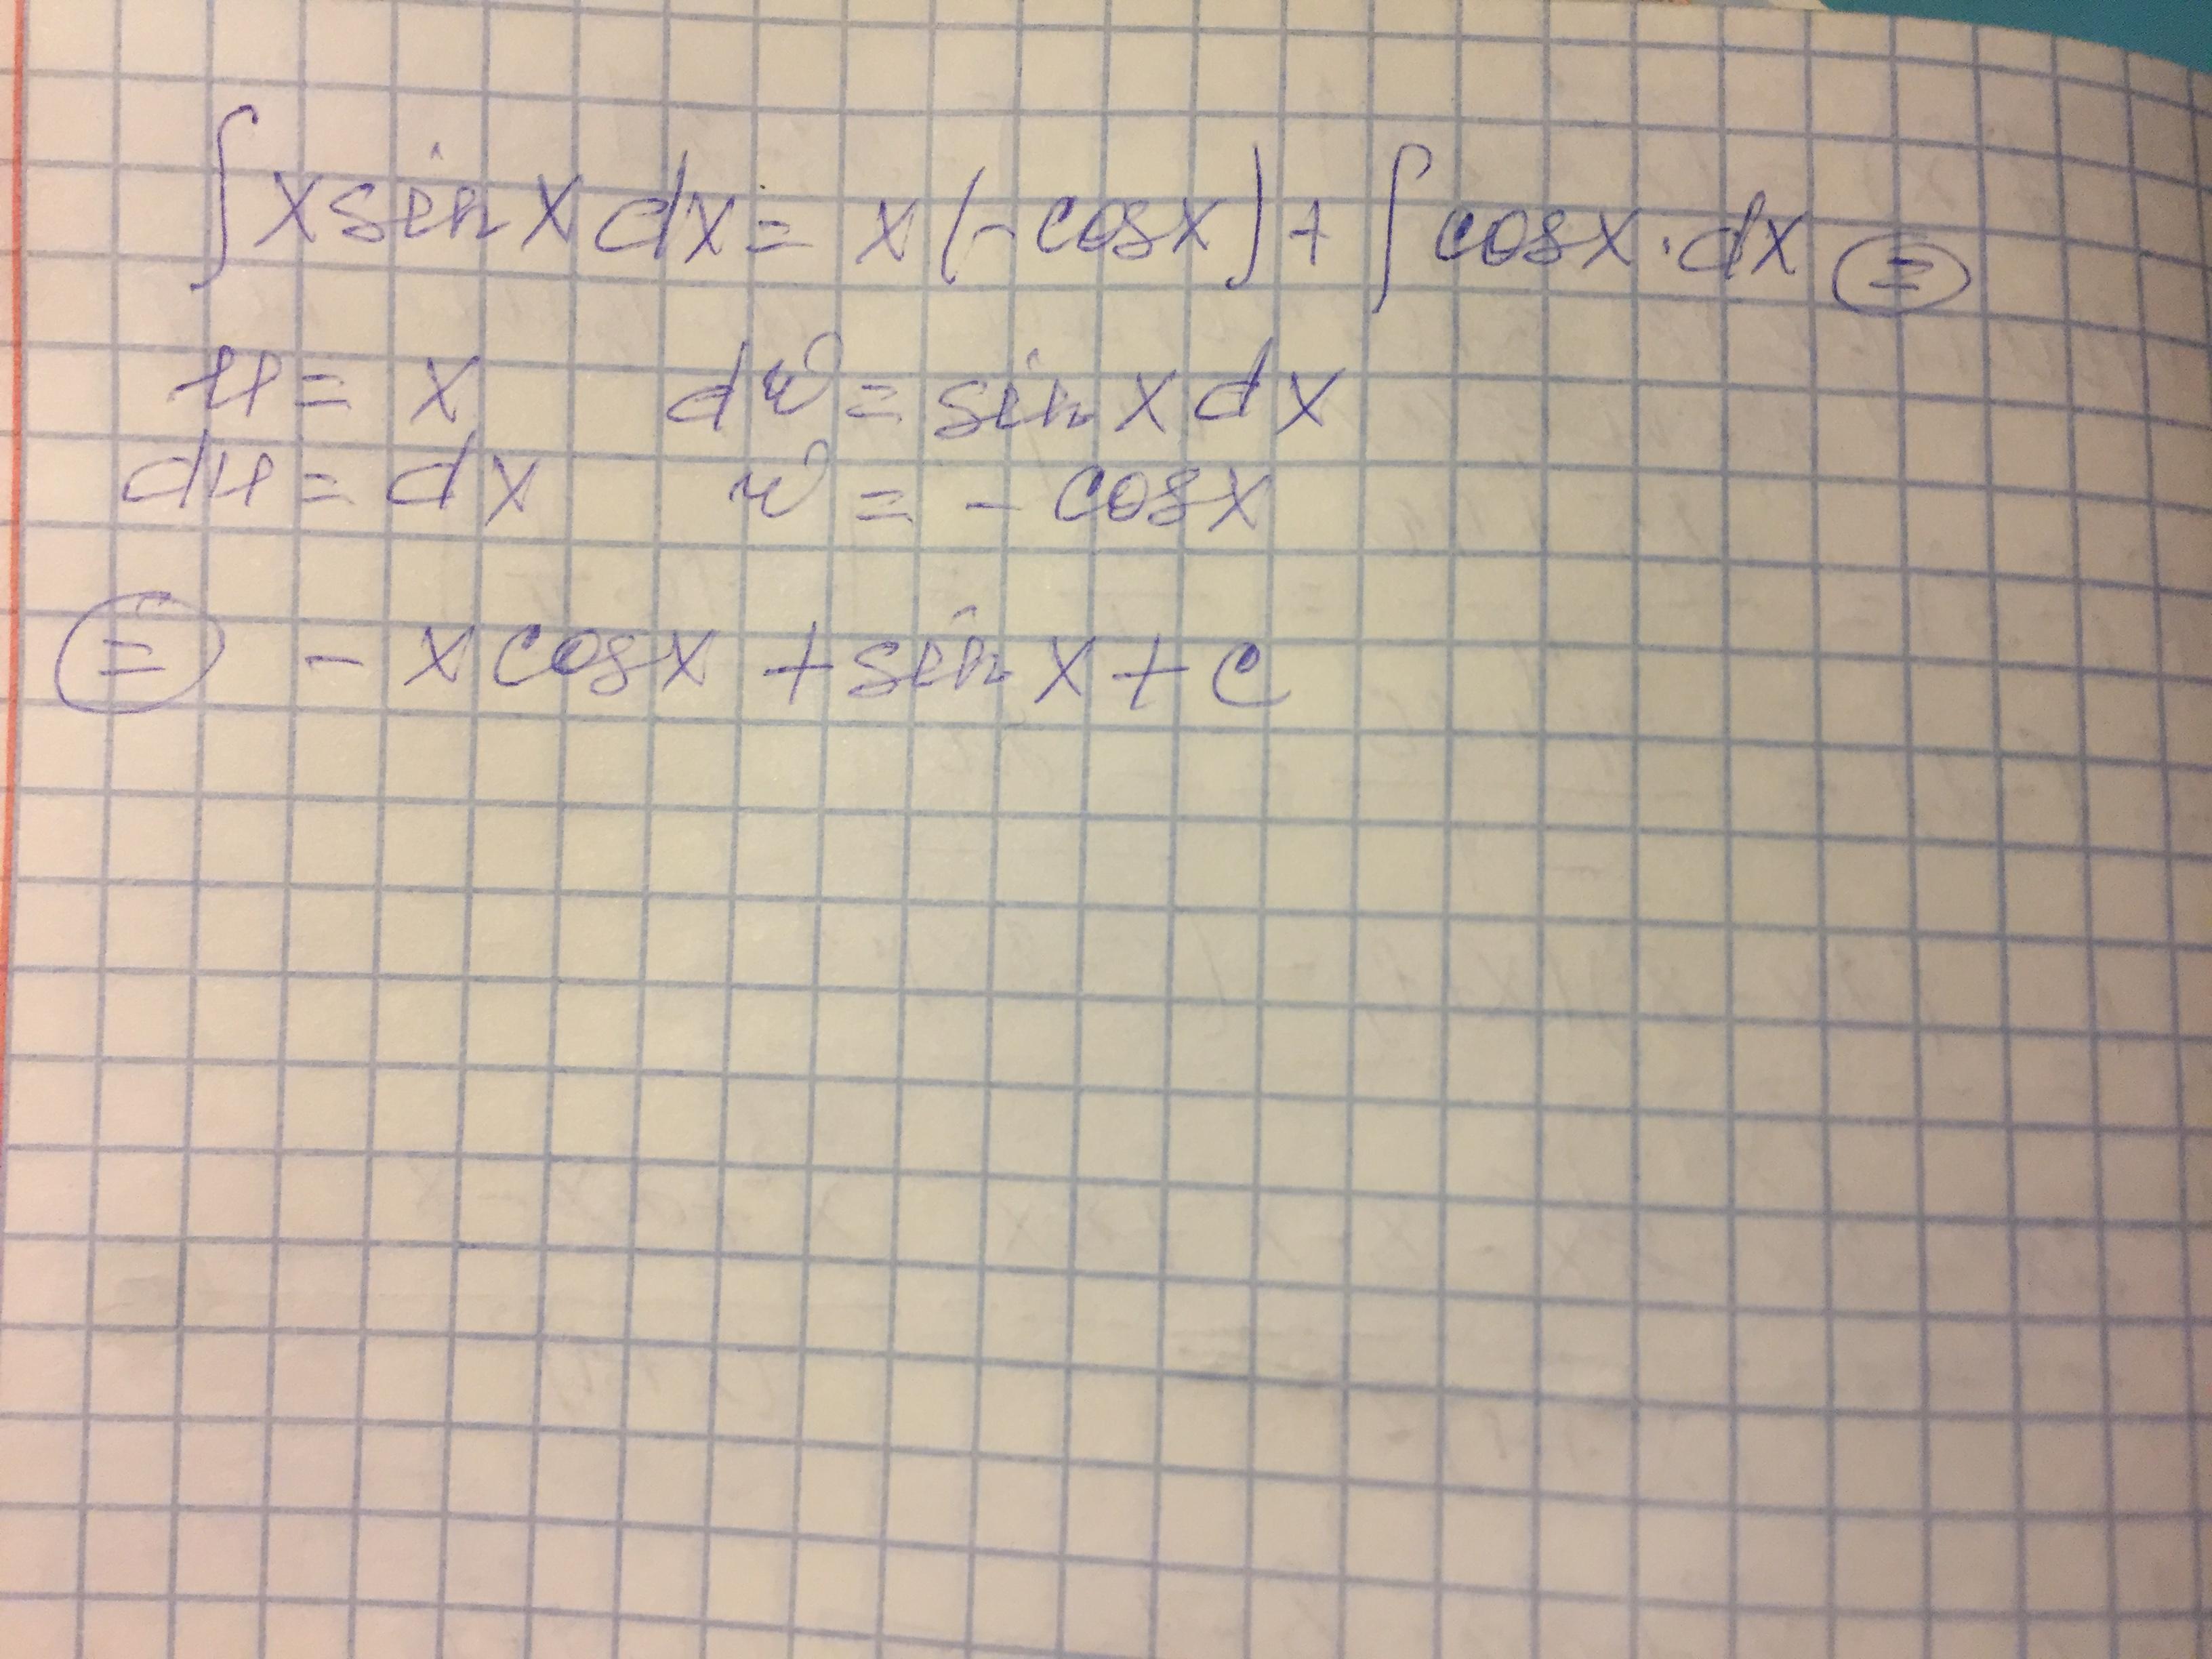 ∫ x sin x dx = x(-cos x) + ∫ cos x · dx ⊜
u = x dv = sin x dx
du = dx v = - cos x
⊜ - x cos x + sin x + c